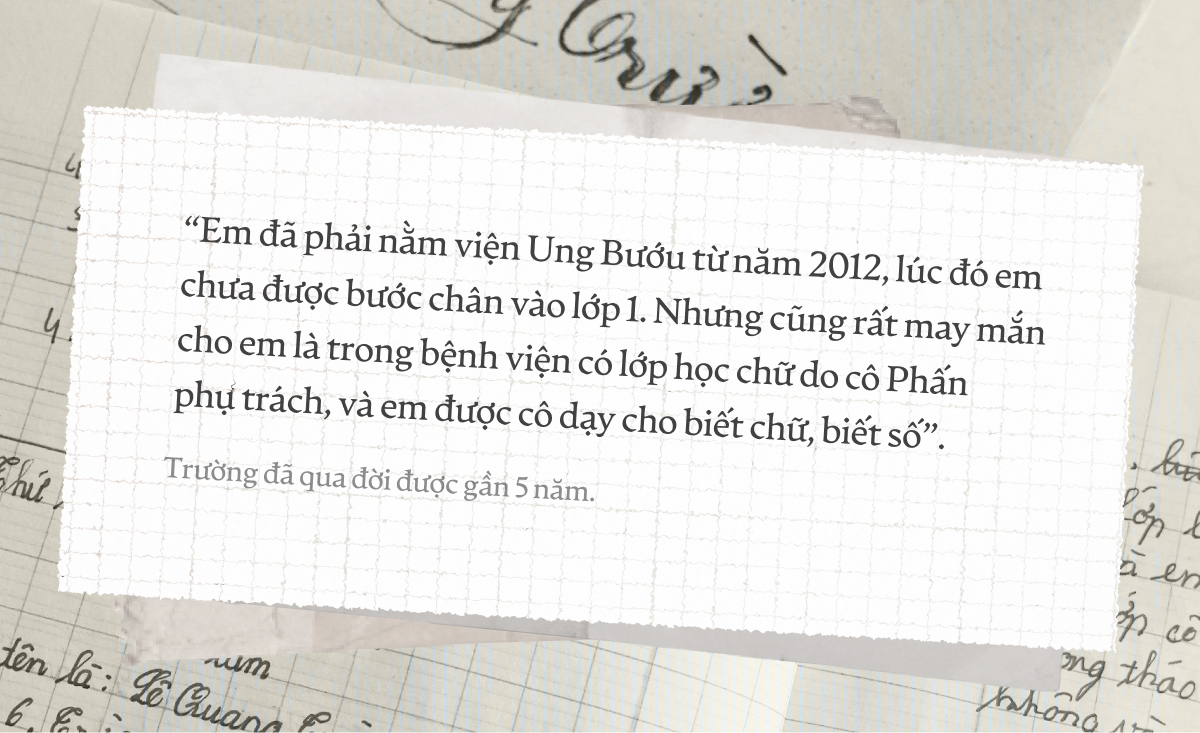 “Em đã phải nằm viện Ung Bướu từ năm 2012, lúc đó em
chưa được bước chân vào lớp 1. Nhưng cũng rất may mắn
cho em là trong bệnh viện có lớp học chữ do cô Phấn
phụ trách, và em được cô dạy cho biết chữ, biết số”.
Trường đã qua đời được gần 5 năm.
4.
Thứ
lớp
em
cô
ong tháo
tên là: Lê Quang
không
6.